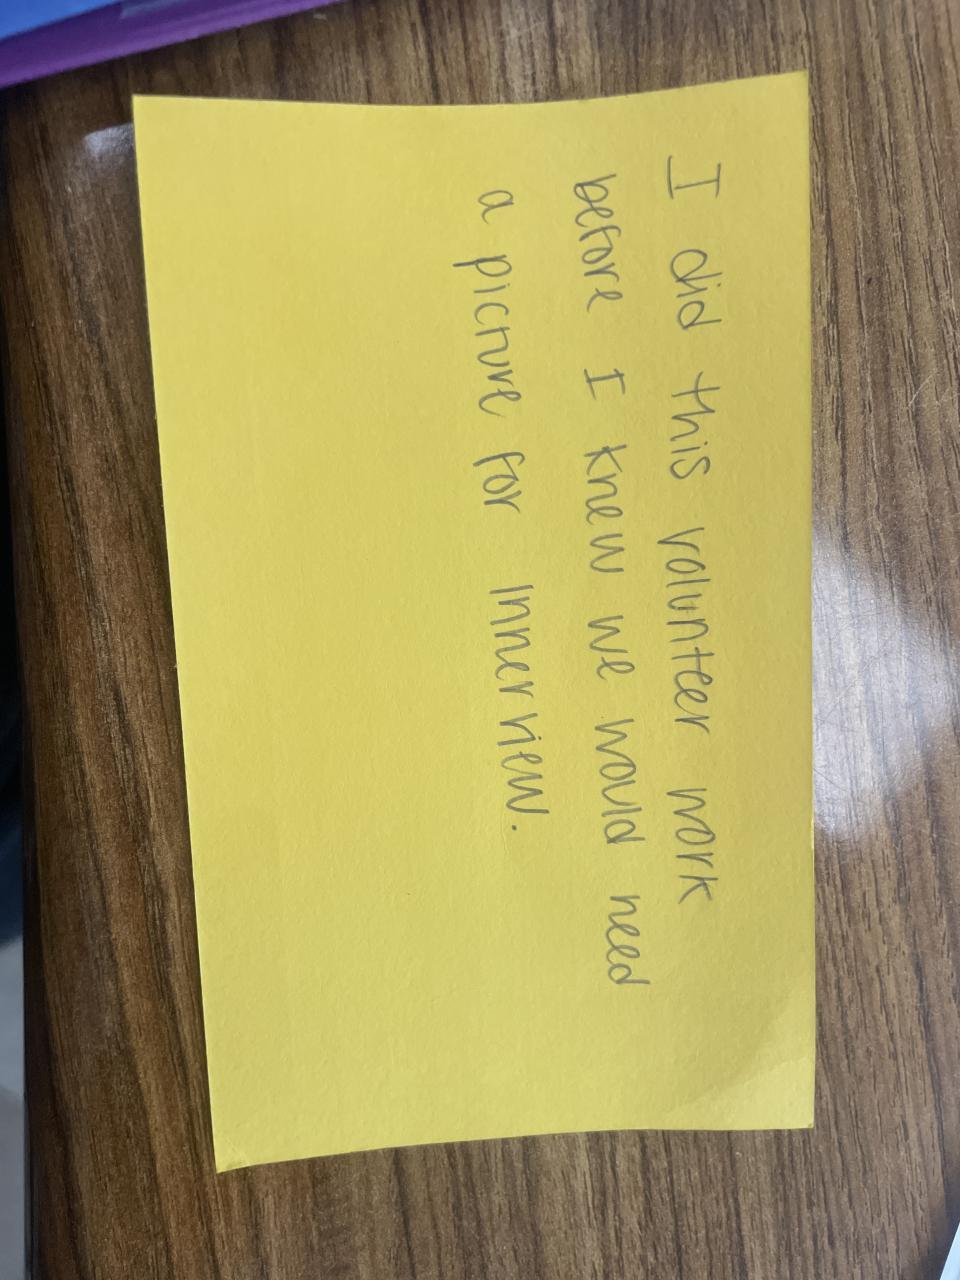 I did this volunteer work
before I knew we would need
a picture for Innerview.